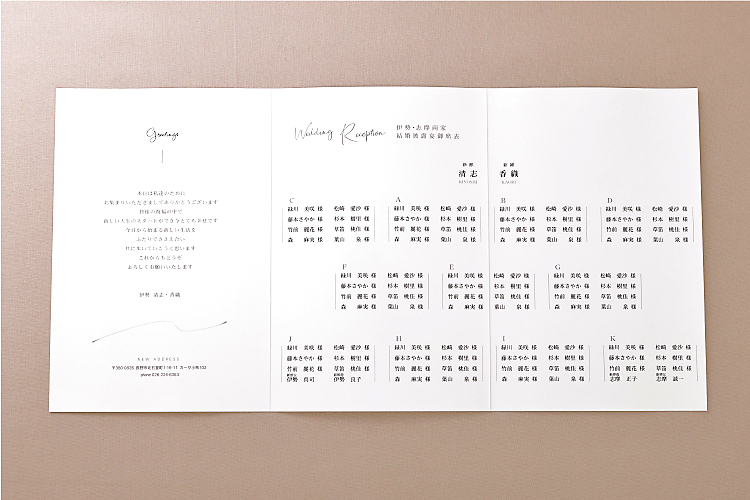 Greetings
本日は私達のために
お集まりいただきましてありがとうございます
皆様の祝福の中で
新しい人生のスタートができ今とても幸せです
今日から始まる新しい生活を
ふたりでささえあい
共に歩いていこうと思います
これからもどうぞ
よろしくお願いいたします
伊勢 清志・香織
NEW ADDRESS
phone 026-224-6363
Wedding Reception
伊勢・志摩両家
結婚披露宴御席表
新郎 新婦
清志 香織
KIYOSHI KAORI
C A B D
緑川 美咲 様 松崎 愛沙 様 緑川 美咲 様 松崎 愛沙 様 緑川 美咲 様 松崎 愛沙 様 緑川 美咲 様 松崎 愛沙 様
藤本さやか 様 杉本 樹里 様 藤本さやか 様 杉本 樹里 様 藤本さやか 様 杉本 樹里 様 藤本さやか 様 杉本 樹里 様
竹前 麗花 様 草笛 桃佳 様 竹前 麗花 様 草笛 桃佳 様 竹前 麗花 様 草笛 桃佳 様 竹前 麗花 様 草笛 桃佳 様
森 麻実 様 葉山 泉 様 森 麻実 様 葉山 泉 様 森 麻実 様 葉山 泉 様 森 麻実 様 葉山 泉 様
F E G
緑川 美咲 様 松崎 愛沙 様 緑川 美咲 様 松崎 愛沙 様 緑川 美咲 様 松崎 愛沙 様
藤本さやか 様 杉本 樹里 様 藤本さやか 様 杉本 樹里 様 藤本さやか 様 杉本 樹里 様
竹前 麗花 様 草笛 桃佳 様 竹前 麗花 様 草笛 桃佳 様 竹前 麗花 様 草笛 桃佳 様
森 麻実 様 葉山 泉 様 森 麻実 様 葉山 泉 様 森 麻実 様 葉山 泉 様
J H I K
緑川 美咲 様 松崎 愛沙 様 緑川 美咲 様 松崎 愛沙 様 緑川 美咲 様 松崎 愛沙 様 緑川 美咲 様 松崎 愛沙 様
藤本さやか 様 杉本 樹里 様 藤本さやか 様 杉本 樹里 様 藤本さやか 様 杉本 樹里 様 藤本さやか 様 杉本 樹里 様
竹前 麗花 様 草笛 桃佳 様 竹前 麗花 様 草笛 桃佳 様 竹前 麗花 様 草笛 桃佳 様 竹前 麗花 様 草笛 桃佳 様
新郎父 新郎母 新婦母 新婦父
伊勢 真司 伊勢 良子 森 麻実 様 葉山 泉 様 森 麻実 様 葉山 泉 様 志摩 正子 志摩 誠一